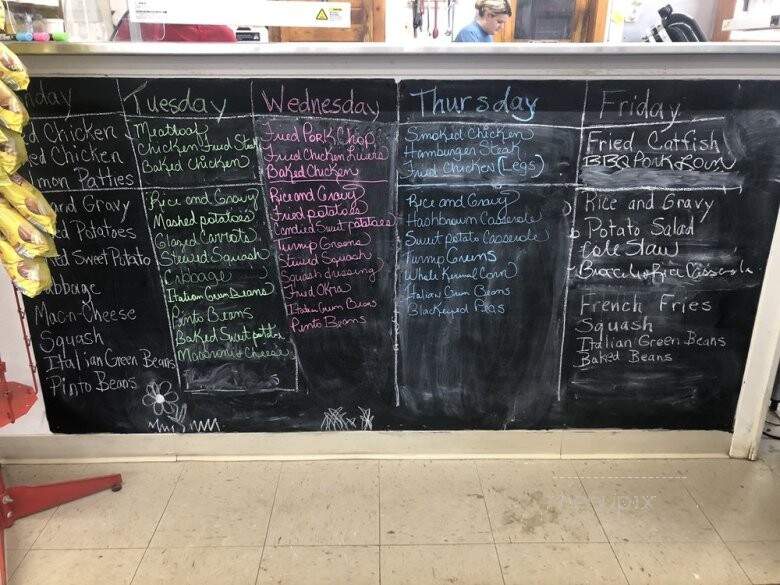 day
d Chicken
ed Chicken
mon Patties
and Gravy
ed Potatoes
ed Sweet Potato
abbage
Macn-Cheese
Squash
Italian Green Beans
Pinto Beans
Tuesday
Meatloaf
Chicken Fried Steak
Baked Chicken
Rice and Gravy
Mashed potatoes
Glazed Carrots
Stewed Squash
Cabbage
Italian Green Beans
Pinto Beans
Baked Sweet potato
Macaroni Cheese
Wednesday
Fried Pork Chop
Fried Chicken Livers
Baked Chicken
Rice and Gravy
Fried potatoes
Candied Sweet potatoes
Turnip Greens
Stewed Squash
Squash dressing
Fried Okra
Italian Green Beans
Pinto Beans
Thursday
Smoked Chicken
Hamburger Steak
Fried Chicken (Legs)
Rice and Gravy
Hashbrown Casserole
Sweet Potato Casserole
Turnip Greens
Whole Kernel Corn
Italian Green Beans
Blackeyed Peas
Friday
Fried Catfish
BBQ Pork
Rice and Gravy
Potato Salad
Cole Slaw
Broccoli & Rice Casserole
French Fries
Squash
Italian Green Beans
Baked Beans